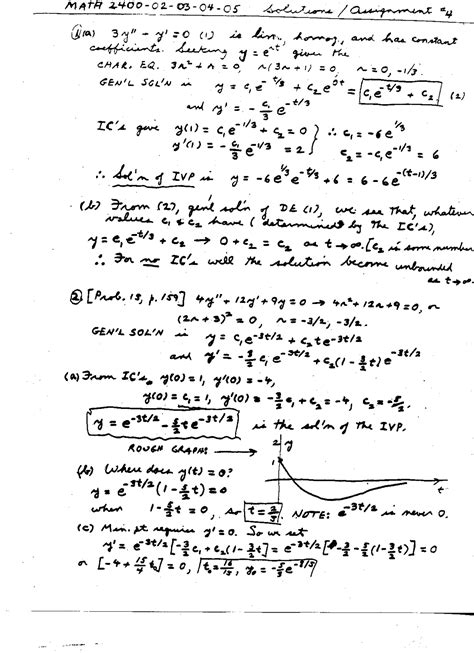 MATH 2400-02-03-04-05 Solutions / Assignment #4
① (a) 3y'' - y' = 0 (1) is lin., homog., and has constant
coefficients. Seeking y = e^{rt} gives the
CHAR. EQ. 3r² + r = 0, r(3r + 1) = 0, r = 0, -1/3.
GEN'L SOL'N is y = c₁e^{-t/3} + c₂e^{0t} = c₁e^{-t/3} + c₂. (2)
and y' = -c₁/3 e^{-t/3}
IC's give y(1) = c₁e^{-1/3} + c₂ = 0 } ∴ c₁ = -6e^{1/3}
y'(1) = -c₁/3 e^{-1/3} = 2 } c₂ = -c₁e^{-1/3} = 6
∴ Sol'n of IVP is y = -6e^{1/3}e^{-t/3} + 6 = 6 - 6e^{-(t-1)/3}
(b) From (2), gen'l sol'n of DE (1), we see that, whatever
values c₁ & c₂ have (determined by the IC's),
y = c₁e^{-t/3} + c₂ → 0 + c₂ = c₂ as t → ∞. [c₂ is some number
∴ For no IC's will the solution become unbounded
as t → ∞.
② [Prob. 15, p. 159] 4y'' + 12y' + 9y = 0 → 4r² + 12r + 9 = 0, or
(2r + 3)² = 0, r = -3/2, -3/2.
GEN'L SOL'N is y = c₁e^{-3t/2} + c₂te^{-3t/2}
and y' = -3/2 c₁e^{-3t/2} + c₂(1 - 3/2 t)e^{-3t/2}
(a) From IC's, y(0) = 1, y'(0) = -4,
y(0) = c₁ = 1, y'(0) = -3/2 c₁ + c₂ = -4, c₂ = -5/2.
y = e^{-3t/2} - 5/2 te^{-3t/2} is the sol'n of the IVP.
ROUGH GRAPH → 2 y
1
t
(b) Where does y(t) = 0?
y = e^{-3t/2}(1 - 5/2 t) = 0
when 1 - 5/2 t = 0, so t = 2/5. NOTE: e^{-3t/2} is never 0.
(c) Min. pt requires y' = 0. So we set
y' = e^{-3t/2}[-3/2 c₁ + c₂(1 - 3/2 t)] = e^{-3t/2}[-3/2 - 5/2(1 - 3/2 t)] = 0
or [-4 + 15/4 t₀] = 0, t₀ = 16/15, y₀ = -5/3 e^{-8/5}